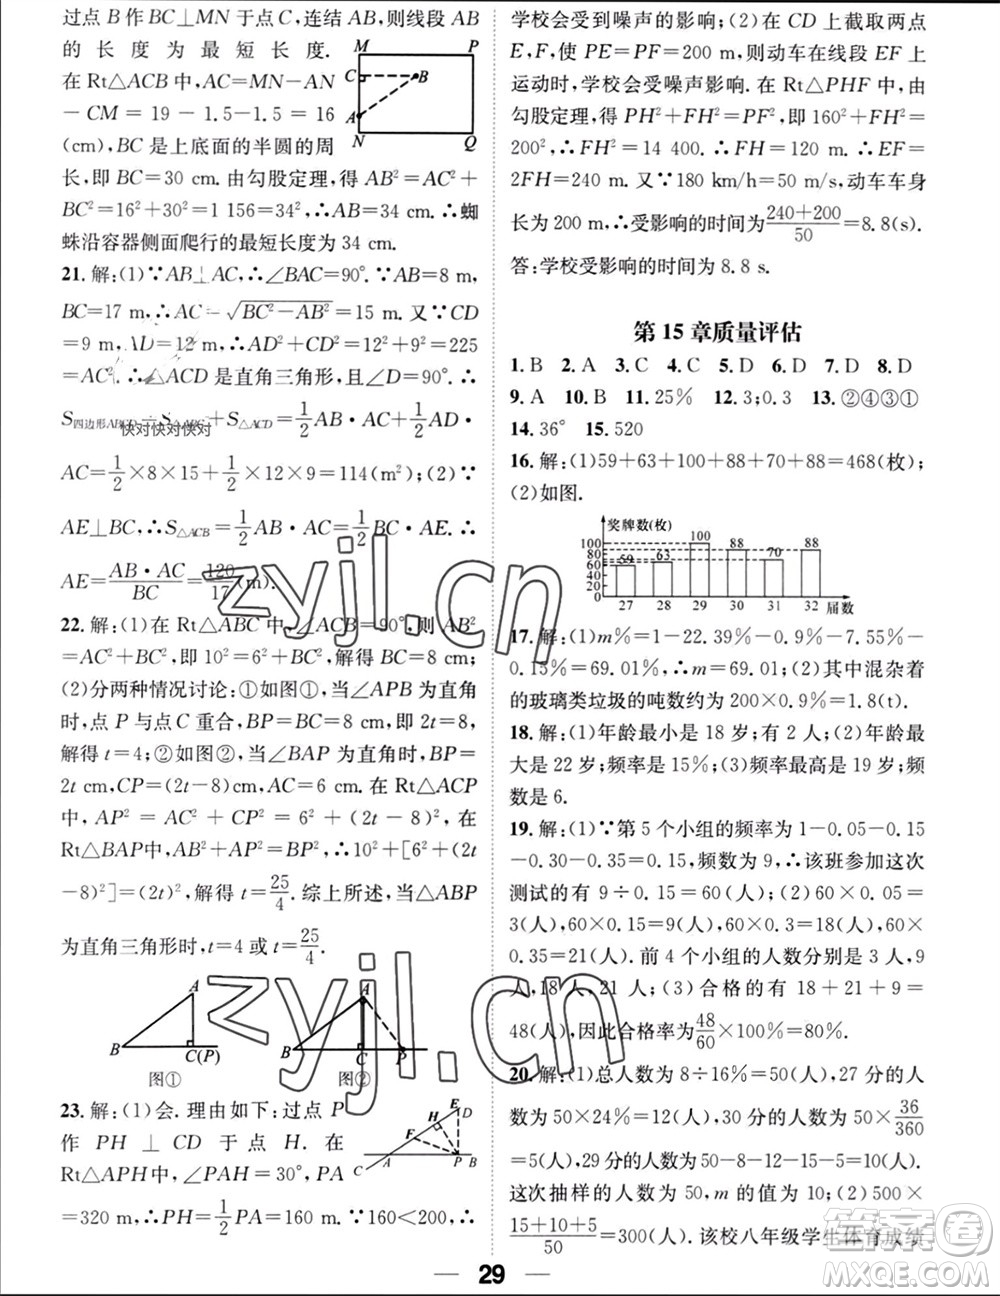 过点 B 作 BC⊥MN 于点 C, 连结 AB, 则线段 AB
的 长 度 为 最 短 长 度.
在 Rt△ACB 中, AC=MN-AN
-CM=19-1.5-1.5=16
(cm), BC 是上底面的半圆的周
长, 即 BC=30 cm. 由勾股定理, 得 AB²=AC²+
BC²=16²+30²=1 156=34², ∴AB=34 cm. ∴蜘
蛛沿容器侧面爬行的最短长度为 34 cm.
M P
C B
A
N Q
21. 解:(1)∵AB⊥AC, ∴∠BAC=90°. ∵AB=8 m,
BC=17 m, ∴AC=√(BC²-AB²)=15 m. 又∵CD
=9 m, AD=12 m, ∴AD²+CD²=12²+9²=225
=AC², ∴△ACD 是直角三角形, 且∠D=90°. ∴
S四边形ABCD=S +S△ACD=1/2 AB·AC+1/2 AD·
快对快对快对
AC=1/2×8×15+1/2×12×9=114(m²);(2)∵
AE⊥BC, ∴S△ACB=1/2 AB·AC=1/2 BC·AE. ∴
AE=AB·AC/BC=120/17(m).
22. 解:(1)在 Rt△ABC 中, ∠ACB=90°, 则 AB²
=AC²+BC², 即 10²=6²+BC², 解得 BC=8 cm;
(2)分两种情况讨论:①如图①, 当∠APB 为直角
时, 点 P 与点 C 重合, BP=BC=8 cm, 即 2t=8,
解得 t=4;②如图②, 当∠BAP 为直角时, BP=
2t cm, CP=(2t-8)cm, AC=6 cm. 在 Rt△ACP
中, AP²=AC²+CP²=6²+(2t-8)². 在
Rt△BAP中, AB²+AP²=BP², 即 10²+[6²+(2t
-8)²]=(2t)², 解得 t=25/4. 综上所述, 当△ABP
为直角三角形时, t=4 或 t=25/4.
A
B C(P)
图①
A
B C P
图②
23. 解:(1)会. 理由如下:过点 P
作 PH ⊥ CD 于点 H. 在
Rt△APH 中, ∠PAH=30°, PA
=320 m, ∴PH=1/2 PA=160 m. ∵160<200, ∴
E D
H
F
C A P B
学校会受到噪声的影响;(2)在 CD 上截取两点
E, F, 使 PE=PF=200 m, 则动车在线段 EF 上
运动时, 学校会受噪声影响. 在 Rt△PHF 中, 由
勾股定理, 得 PH²+FH²=PF², 即 160²+FH²=
200², ∴FH²=14 400. ∴FH=120 m. ∴EF=
2FH=240 m. 又∵180 km/h=50 m/s, 动车车身
长为 200 m, ∴受影响的时间为(240+200)/50=8.8(s).
答:学校受影响的时间为 8.8 s.
第 15 章质量评估
1. B 2. A 3. C 4. C 5. D 6. D 7. D 8. D
9. A 10. B 11. 25% 12. 3;0.3 13. ②④③①
14. 36° 15. 520
16. 解:(1)59+63+100+88+70+88=468(枚);
(2)如图.
奖牌数(枚)
100
80
60
40
20
0
59 63 100 88 70 88
27 28 29 30 31 32 届数
17. 解:(1)m%=1-22.39%-0.9%-7.55%-
0.15%=69.01%, ∴m=69.01;(2)其中混杂着
的玻璃类垃圾的吨数约为 200×0.9%=1.8(t).
18. 解:(1)年龄最小是 18 岁, 有 2 人;(2)年龄最
大是 22 岁; 频率是 15%;(3)频率最高是 19 岁, 频
数是 6.
19. 解:(1)∵第 5 个小组的频率为 1-0.05-0.15
-0.30-0.35=0.15, 频数为 9, ∴该班参加这次
测试的有 9÷0.15=60(人);(2)60×0.05=
3(人), 60×0.15=9(人), 60×0.3=18(人), 60×
0.35=21(人). 前 4 个小组的人数分别是 3 人, 9
人, 18 人, 21 人;(3)合格的有 18+21+9=
48(人), 因此合格率为48/60×100%=80%.
20. 解:(1)总人数为 8÷16%=50(人), 27 分的人
数为 50×24%=12(人), 30 分的人数为 50×36/360
=5(人), 29 分的人数为 50-8-12-15-5=10(人).
这次抽样的人数为 50, m 的值为 10;(2)500×
(15+10+5)/50=300(人), 该校八年级学生体育成绩
29
zyjl.cn
zyjl.cn
答案圈
MXQE.COM